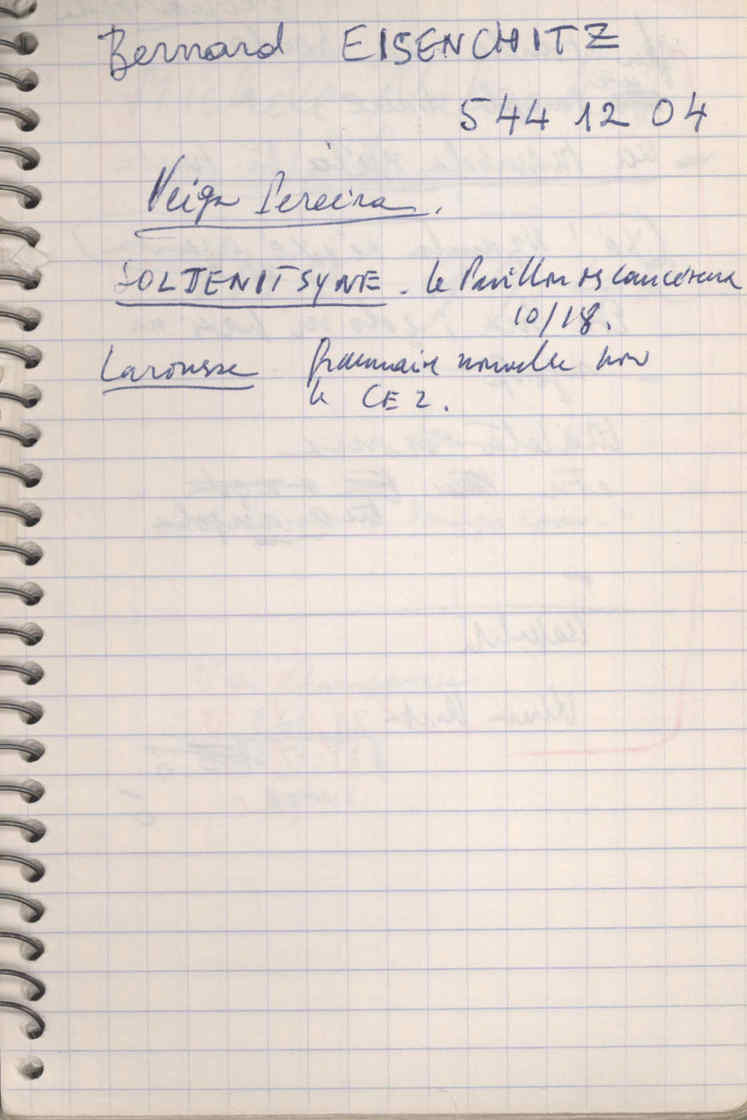 Bernard EISENCHITZ
544 12 04
Veiga Pereira.
SOLJENITSYNE. Le Pavillon des cancéreux
10/18.
Larousse Grammaire nouvelle pour
le CE 2.